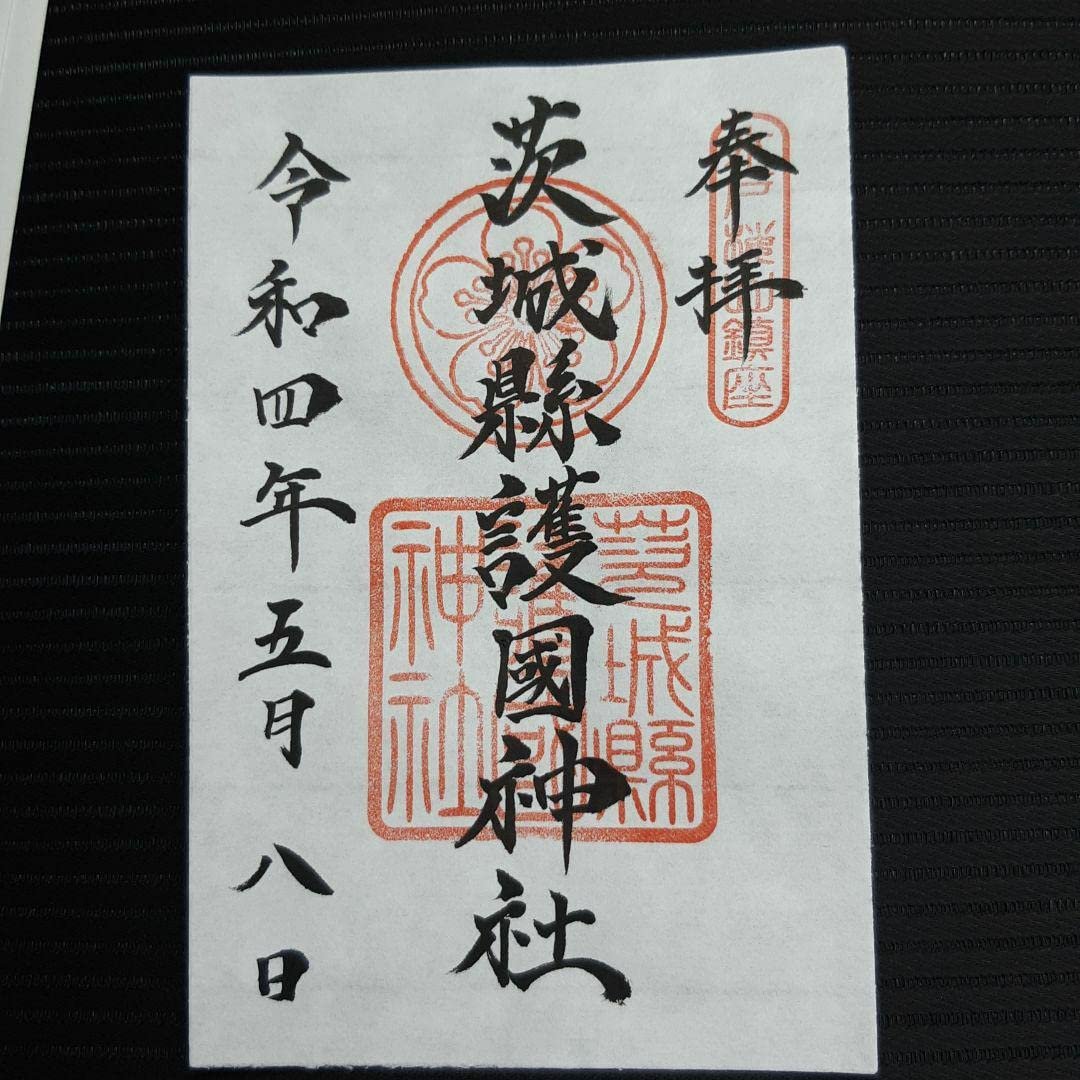 奉拝
茨城縣護國神社
茨城縣
神社
令和四年五月八日